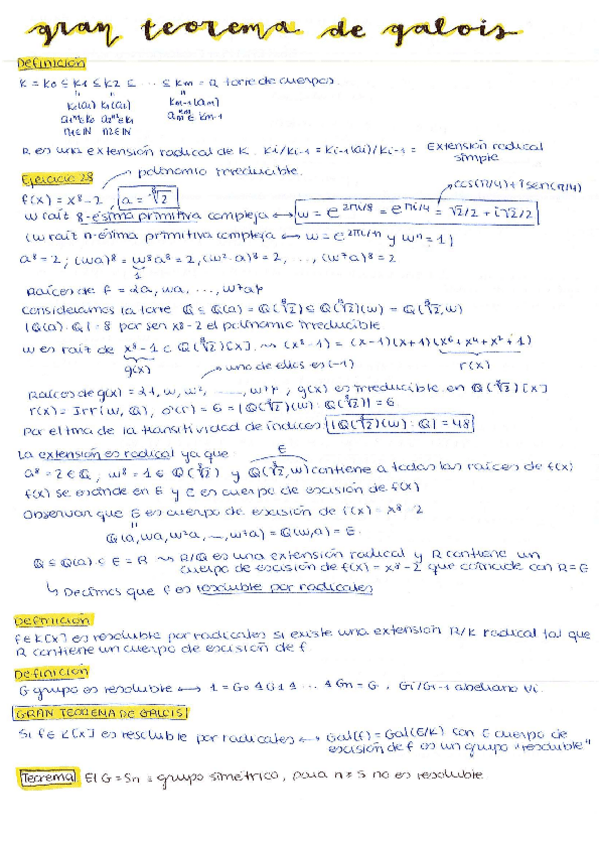 gran teorema de galois
Definición
K = K0 ⊆ K1 ⊆ K2 ⊆ ... ⊆ Km = R torre de cuerpos.
K0(a1) K1(a2) Km-1(am)
a1^n1 ∈ K0 a2^n2 ∈ K1 am^nm ∈ Km-1
n1 ∈ IN n2 ∈ IN
R es una extensión radical de K. Ki/Ki-1 = Ki-1(ai)/Ki-1 = Extensión radical simple
Ejercicio 28 → polinomio irreducible.
f(x) = x⁸-2, a = ⁸√2 cos(π/4)+i sen(π/4)
w raíz 8-ésima primitiva compleja ↔ w = e^2πi/8 = e^πi/4 = √2/2 + i√2/2
(w raíz n-ésima primitiva compleja ↔ w = e^2πi/n y wⁿ = 1)
a⁸ = 2; (wa)⁸ = w⁸a⁸ = 2, (w²·a)⁸ = 2, ..., (w⁷a)⁸ = 2
1
Raíces de f = {a, wa, ..., w⁷a}
Consideramos la torre Q ⊆ Q(a) = Q(⁸√2) ⊆ Q(⁸√2)(w) = Q(⁸√2, w)
|Q(a):Q| = 8 por ser x⁸-2 el polinomio irreducible
w es raíz de x⁸-1 ∈ Q(⁸√2)[x] ⇝ (x⁸-1) = (x-1)(x+1)(x⁶+x⁴+x²+1)
g(x) → uno de ellos es (-1) r(x)
Raíces de g(x) = {1, w, w², ..., w⁷}, g(x) es irreducible en Q(⁸√2)[x]
r(x) = Irr(w, Q), σ(r) = 6 = |Q(⁸√2)(w) : Q(⁸√2)| = 6
Por el tma de la transitividad de índices |Q(⁸√2)(w) : Q| = 48
La extensión es radical ya que: E
a⁸ = 2 ∈ Q, w⁸ = 1 ∈ Q(⁸√2) y Q(⁸√2, w) contiene a todas las raíces de f(x)
f(x) se escinde en E y E es cuerpo de escisión de f(x)
Observar que E es cuerpo de escisión de f(x) = x⁸-2
Q(a, wa, w²a, ..., w⁷a) = Q(w, a) = E.
Q ⊆ Q(a) ⊆ E = R ⇝ R/Q es una extensión radical y R contiene un
cuerpo de escisión de f(x) = x⁸-2 que coincide con R = E
↳ Decimos que f es resoluble por radicales
Definición
f ∈ K[x] es resoluble por radicales si existe una extensión R/K radical tal que
R contiene un cuerpo de escisión de f.
Definición
G grupo es resoluble ↔ 1 = G0 ⊲ G1 ⊲ ... ⊲ Gn = G, Gi/Gi-1 abeliano ∀i.
GRAN TEOREMA DE GALOIS
Si f ∈ K[x] es resoluble por radicales ↔ Gal(f) = Gal(E/K) con E cuerpo de
escisión de f es un grupo "resoluble"
Teorema El G = Sn = grupo simétrico, para n ≥ 5 no es resoluble